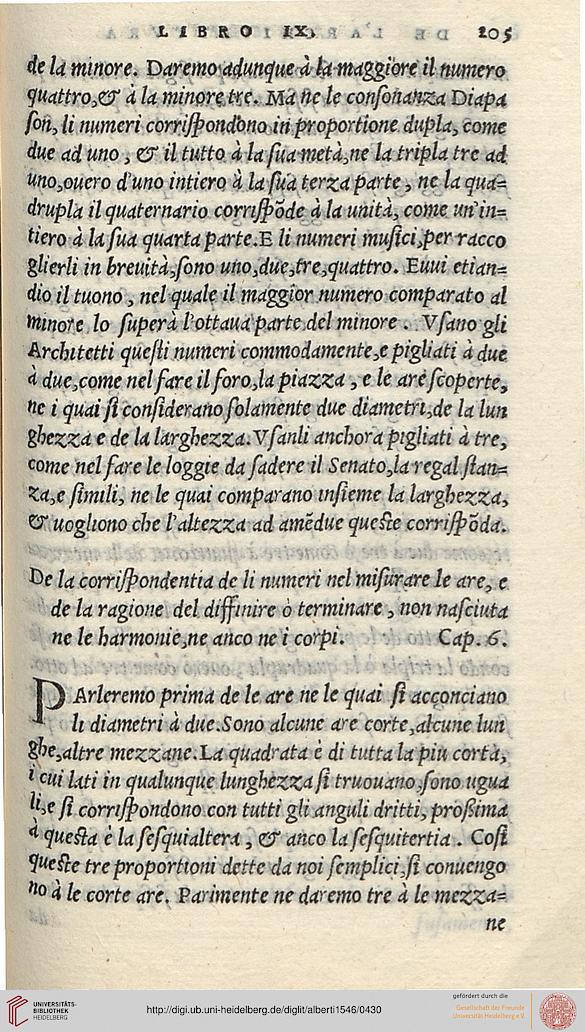 LIBRO IX. 205
de la minore. Daremo adunque à la maggiore il numero
quattro,& à la minore tre. Ma ne le consonanza Diapa
son, li numeri corrispondono in proportione dupla, come
due ad uno , & il tutto à la sua metà,ne la tripla tre ad
uno,ouero d'uno intiero à la sua terza parte , ne la qua=
drupla il quaternario corrispõde à la unità, come un'in=
tiero à la sua quarta parte.E li numeri musici,per racco
glierli in breuità,sono uno,due,tre,quattro. Euui etian=
dio il tuono , nel quale il maggior numero comparato al
minore lo superà l'ottaua parte del minore . Vsano gli
Architetti questi numeri commodamente,e pigliati à due
à due,come nel fare il foro,la piazza , e le are scoperte,
ne i quai si considerano solamente due diametri,de la lun
ghezza e de la larghezza.Vsanli anchora pigliati à tre,
come nel fare le loggie da sadere il Senato,la regal stan=
za,e simili, ne le quai comparano insieme la larghezza,
& uogliono che l'altezza ad amẽdue queste corrispõda.
De la corrispondentia de li numeri nel misurare le are, e
de la ragione del diffinire ò terminare , non nasciuta
ne le harmonie,ne anco ne i corpi. Cap. 6.
PArleremo prima de le are ne le quai si acconciano
li diametri à due.Sono alcune are corte,alcune lun
ghe,altre mezzane.La quadrata è di tutta la piu corta,
i cui lati in qualunque lunghezza si truouano,sono ugua
li,e si corrispondono con tutti gli anguli dritti, prossima
à questa è la sesquialtera , & anco la sesquitertia . Cosi
queste tre proportioni dette da noi semplici,si conuengo
no à le corte are. Parimente ne daremo tre à le mezza=
ne
UNIVERSITÄTS-
BIBLIOTHEK
HEIDELBERG
http://digi.ub.uni-heidelberg.de/diglit/alberti1546/0430
gefördert durch die
Gesellschaft der Freunde
Universität Heidelberg e.V.